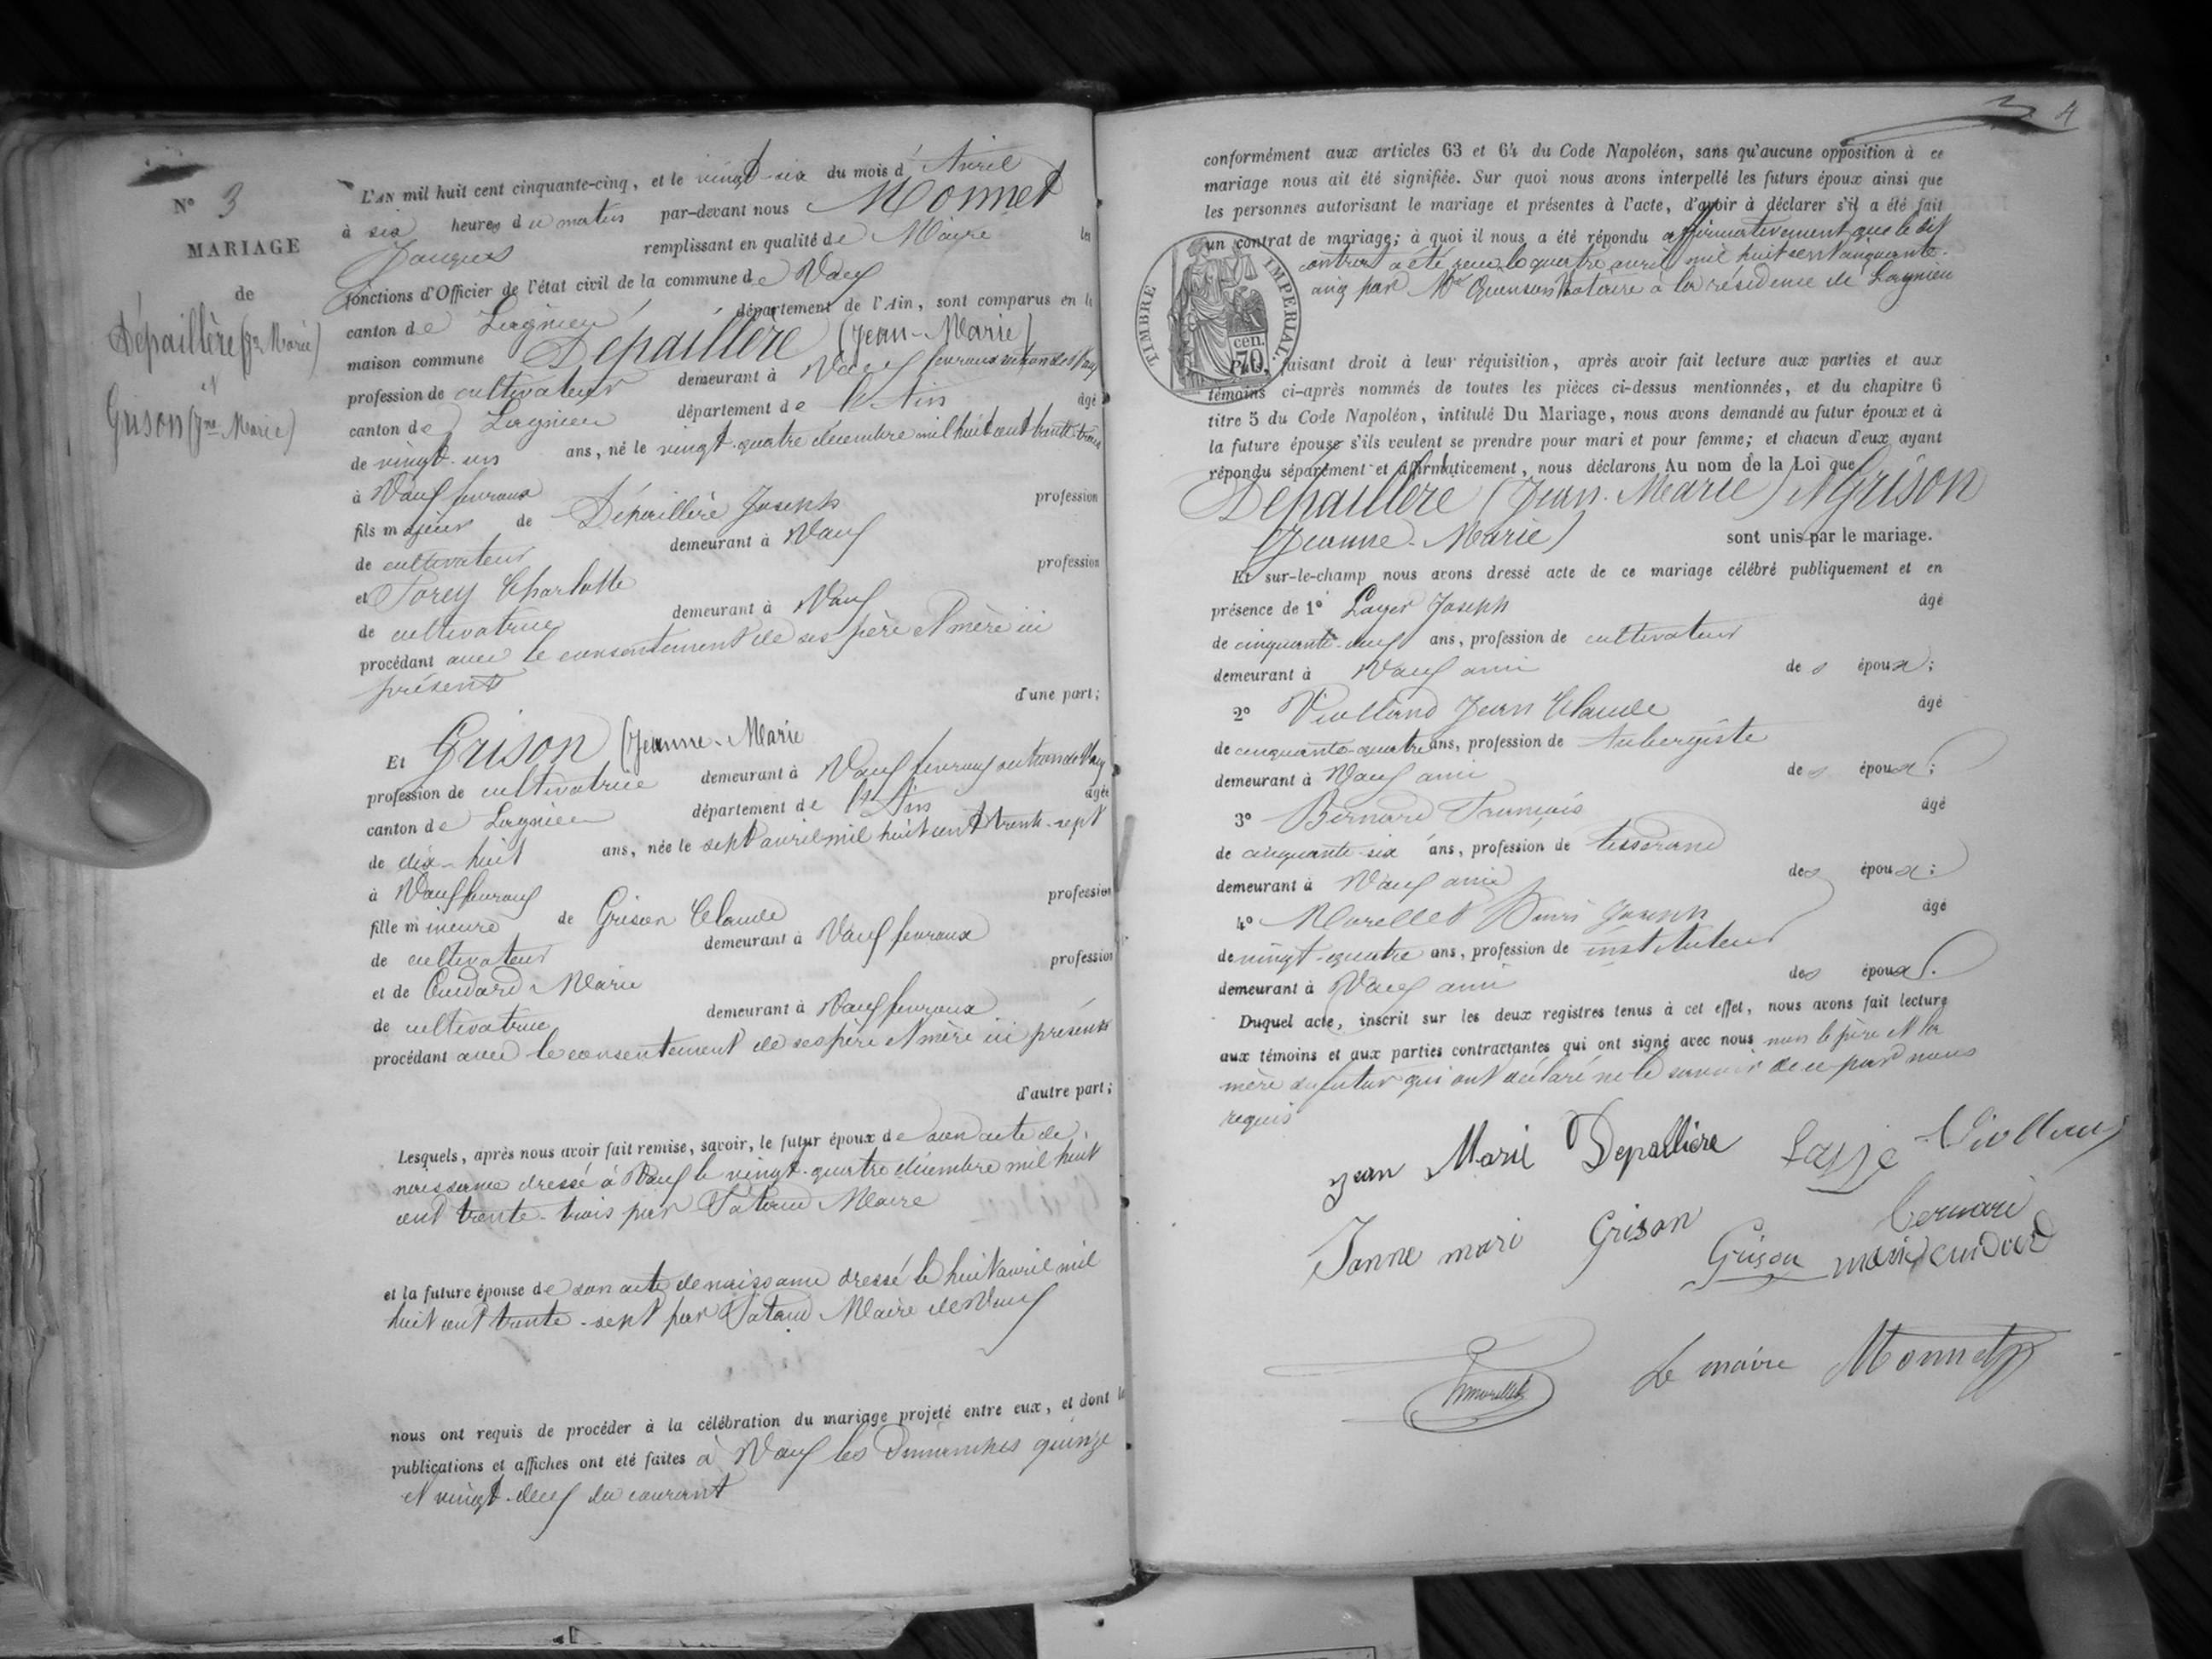 N° 3
MARIAGE
de
Dépaillère (Jn Marie)
et
Grison (Jne Marie)
L'AN mil huit cent cinquante-cinq, et le vingt-six du mois d'Avril
à six heures du matin par-devant nous Monnet
Jacques remplissant en qualité de Maire les
fonctions d'Officier de l'état civil de la commune de Vaux
canton de Lagnieu département de l'Ain, sont comparus en la
maison commune Dépaillère (Jean-Marie)
profession de cultivateur demeurant à Vaux fevroux
canton de Lagnieu département de l'Ain âgé
de vingt-un ans, né le vingt-quatre décembre mil huit cent trente-trois
à Vaux fevroux
fils majeur de Dépaillère Joseph profession
de cultivateur demeurant à Vaux
et Torey Charlotte profession
de cultivatrice demeurant à Vaux
procédant avec le consentement de ses père et mère ici
présents d'une part;
Et Grison (Jeanne-Marie
profession de cultivatrice demeurant à Vaux fevroux
canton de Lagnieu département de l'Ain âgée
de dix-huit ans, née le sept avril mil huit cent trente-sept
à Vaux fevroux
fille mineure de Grison Claude profession
de cultivateur demeurant à Vaux fevroux
et de Cuidard Marie profession
de cultivatrice demeurant à Vaux fevroux
procédant avec le consentement de ses père et mère ici présents
d'autre part;
Lesquels, après nous avoir fait remise, savoir, le futur époux de son acte de
naissance dressé à Vaux le vingt-quatre décembre mil huit
cent trente-trois par Pataud Maire
et la future épouse de son acte de naissance dressé le huit avril mil
huit cent trente-sept par Pataud Maire de Vaux
nous ont requis de procéder à la célébration du mariage projeté entre eux, et dont les
publications et affiches ont été faites à Vaux les Dimanches quinze
et vingt-deux du courant
4
conformément aux articles 63 et 64 du Code Napoléon, sans qu'aucune opposition à ce
mariage nous ait été signifiée. Sur quoi nous avons interpellé les futurs époux ainsi que
les personnes autorisant le mariage et présentes à l'acte, d'avoir à déclarer s'il a été fait
un contrat de mariage; à quoi il nous a été répondu affirmativement que le dit
contrat a été reçu le quatre avril mil huit cent cinquante-
cinq par Me Quenson Notaire à la résidence de Lagnieu
TIMBRE IMPERIAL.
cen.
70.
faisant droit à leur réquisition, après avoir fait lecture aux parties et aux
témoins ci-après nommés de toutes les pièces ci-dessus mentionnées, et du chapitre 6
titre 5 du Code Napoléon, intitulé Du Mariage, nous avons demandé au futur époux et à
la future épouse s'ils veulent se prendre pour mari et pour femme; et chacun d'eux ayant
répondu séparément et affirmativement, nous déclarons Au nom de la Loi que
Dépaillère (Jean-Marie) et Grison
(Jeanne-Marie) sont unis par le mariage.
Et sur-le-champ nous avons dressé acte de ce mariage célébré publiquement et en
présence de 1° Layer Joseph âgé
de cinquante-neuf ans, profession de cultivateur
demeurant à Vaux ami des époux;
2° Violland Jean Claude âgé
de cinquante-quatre ans, profession de Aubergiste
demeurant à Vaux ami des époux;
3° Bernard François âgé
de cinquante-six ans, profession de tisserand
demeurant à Vaux ami des époux;
4° Morellet Henri Joseph âgé
de vingt-quatre ans, profession de instituteur
demeurant à Vaux ami des époux.
Duquel acte, inscrit sur les deux registres tenus à cet effet, nous avons fait lecture
aux témoins et aux parties contractantes qui ont signé avec nous non le père et la
mère du futur qui ont déclaré ne le savoir de ce par nous
requis
Jean Marie Depallière Violland
Janne mari Grison Bernard
Grison marie cuidard
Hmorellet Le maire Monnet